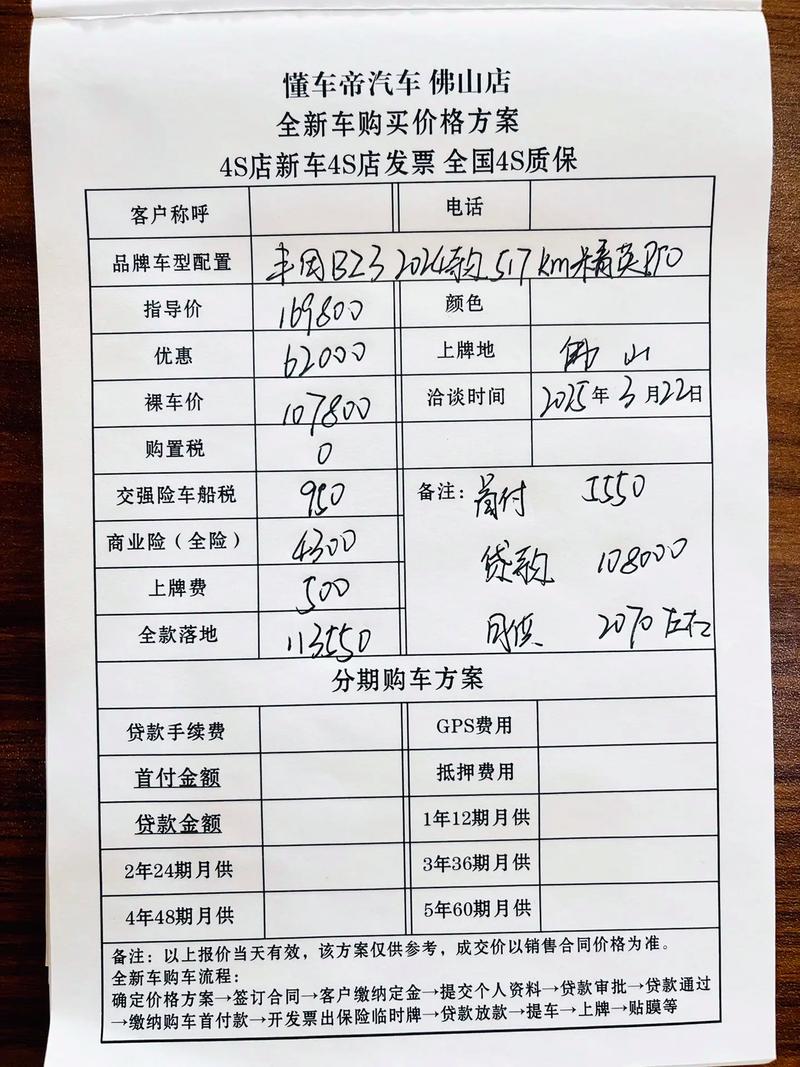 懂车帝汽车 佛山店
全新车购买价格方案
4S店新车4S店发票 全国4S质保
客户称呼 电话
品牌车型配置 丰田BZ3 2024款 517km精英Pro
指导价 169800 颜色
优惠 62000 上牌地 佛山
裸车价 107800 洽谈时间 2025年3月22日
购置税 0
交强险车船税 950 备注：首付 5550
商业险（全险） 4300 贷款 108000
上牌费 500
全款落地 113550 月供 2070左右
分期购车方案
贷款手续费 GPS费用
首付金额 抵押费用
贷款金额 1年12期月供
2年24期月供 3年36期月供
4年48期月供 5年60期月供
备注：以上报价当天有效，该方案仅供参考，成交价以销售合同价格为准。
全新车购车流程：
确定价格方案→签订合同→客户缴纳定金→提交个人资料→贷款审批→贷款通过
→缴纳购车首付款→开发票出保险临时牌→贷款放款→提车→上牌→贴膜等